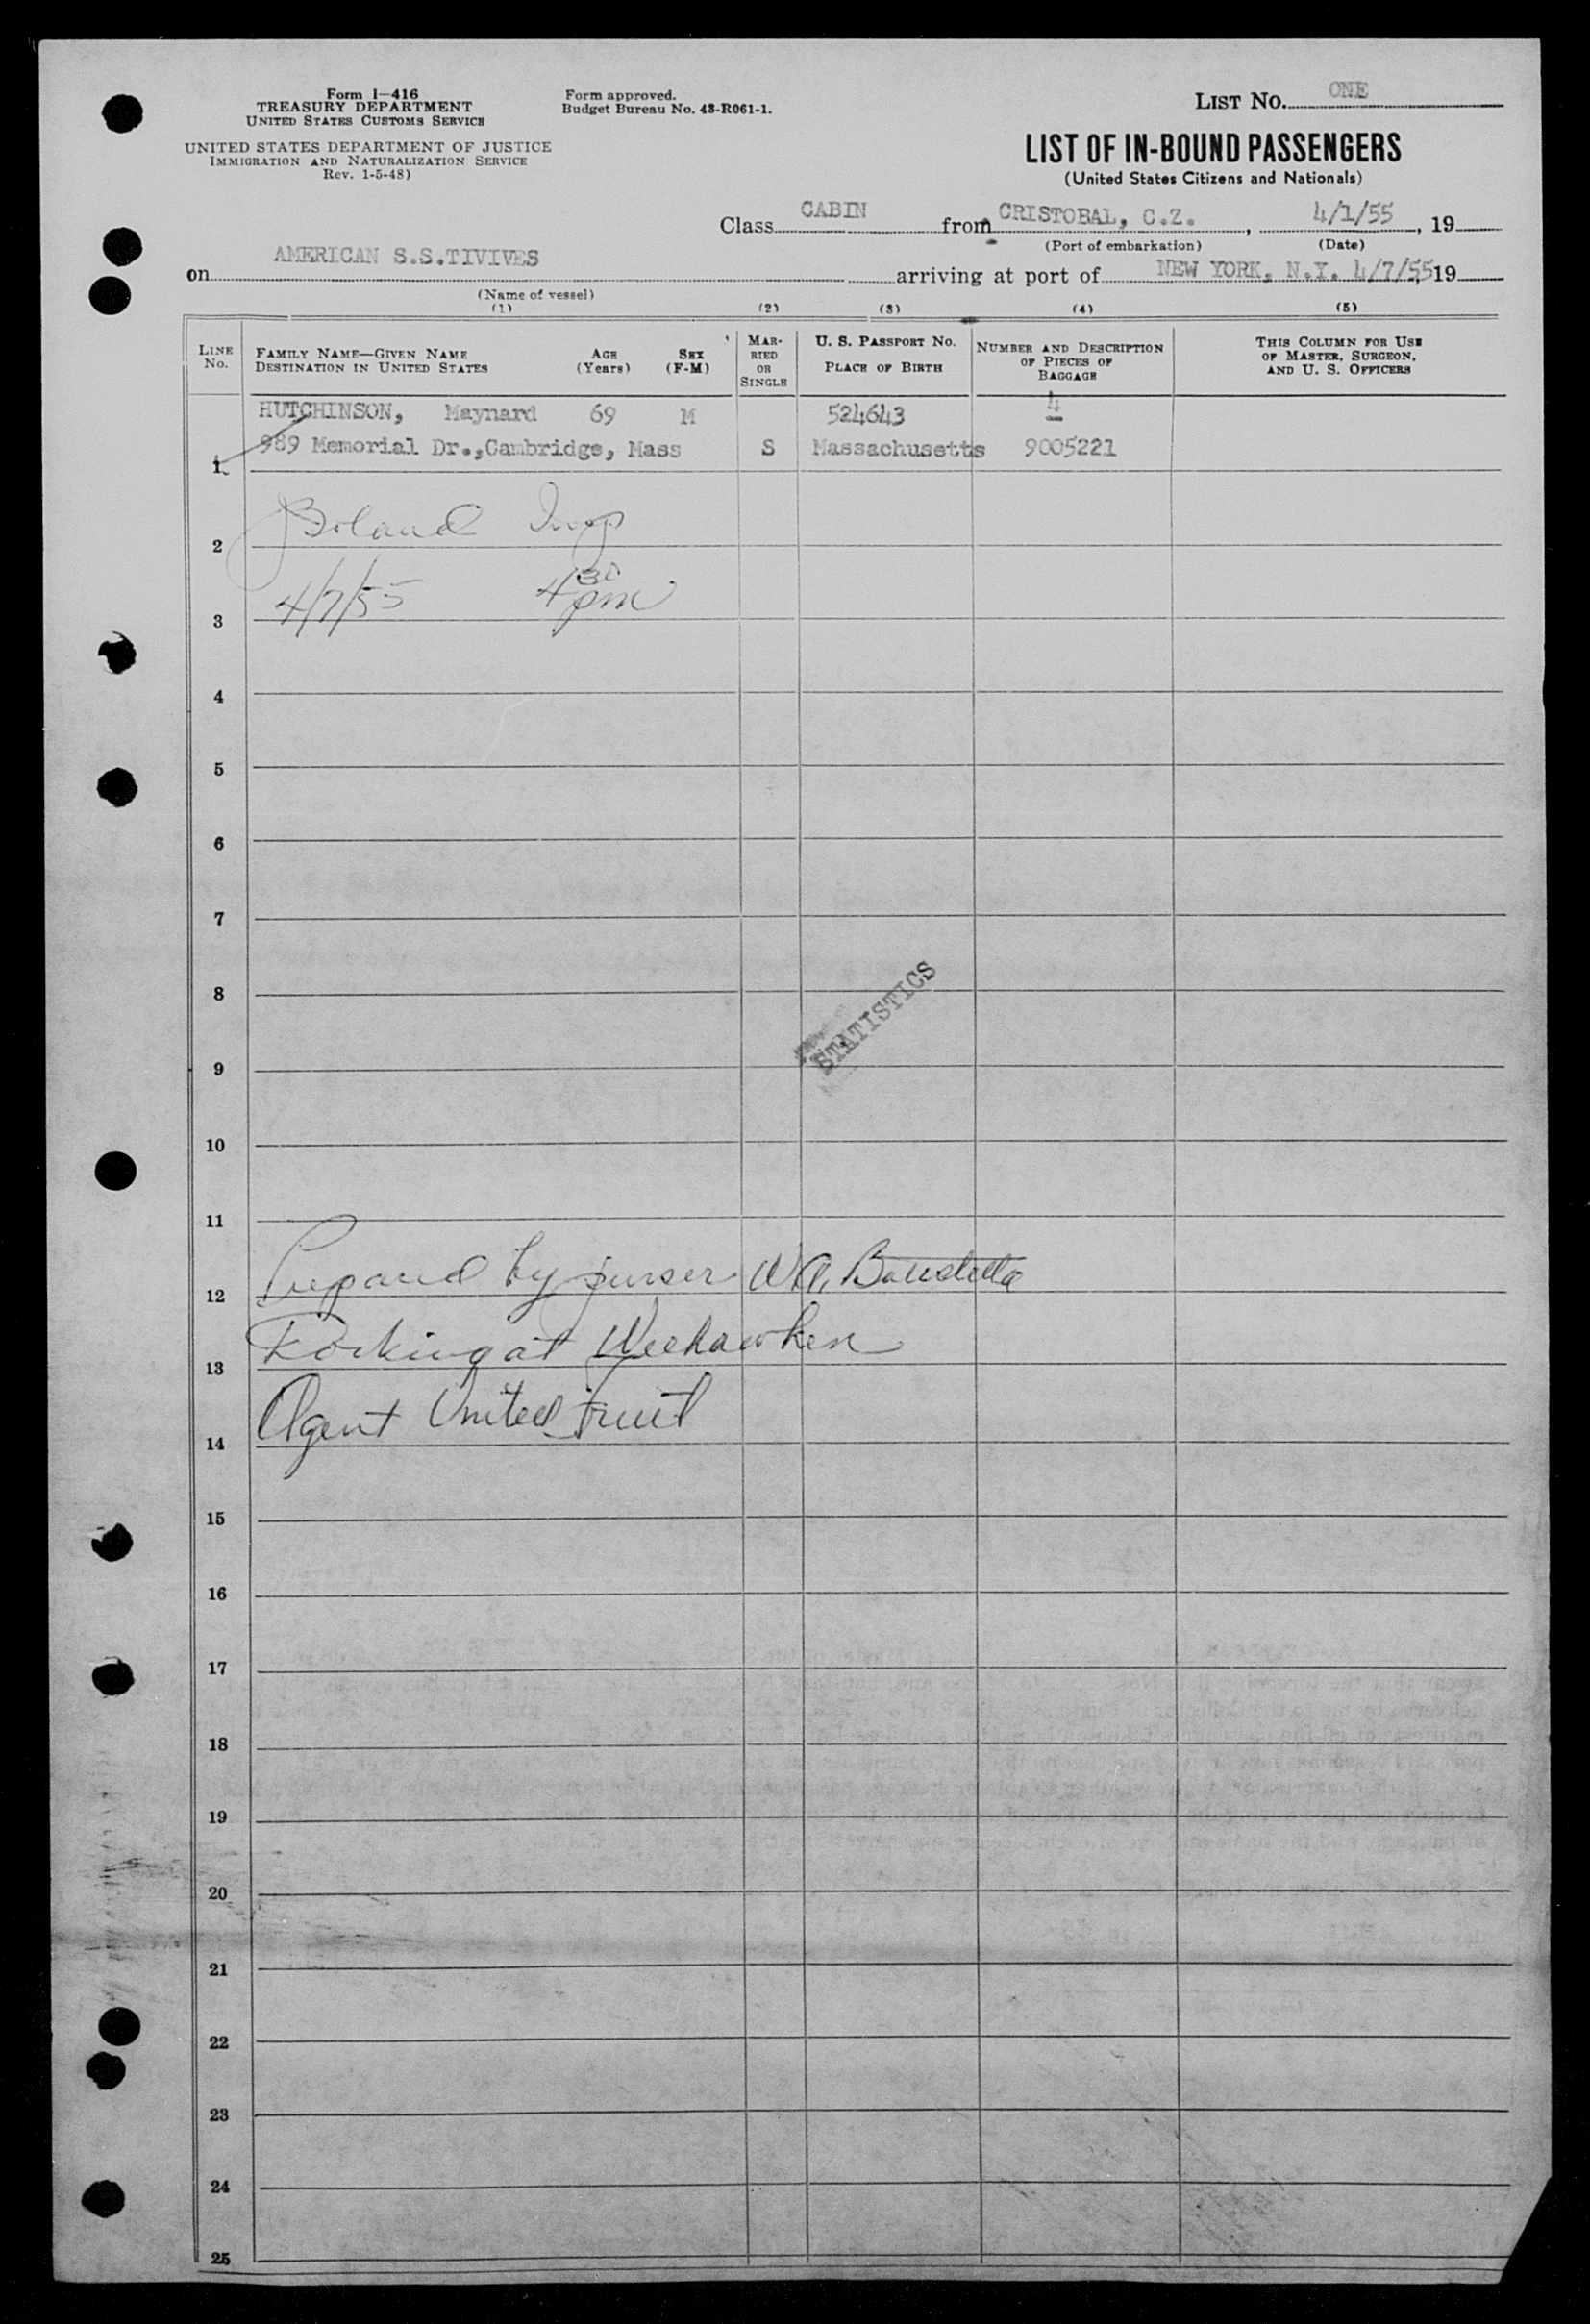 Form I-416
TREASURY DEPARTMENT
UNITED STATES CUSTOMS SERVICE
UNITED STATES DEPARTMENT OF JUSTICE
IMMIGRATION AND NATURALIZATION SERVICE
Rev. 1-5-48)
Form approved.
Budget Bureau No. 43-R061-1.
LIST NO. ONE
LIST OF IN-BOUND PASSENGERS
(United States Citizens and Nationals)
Class CABIN from CRISTOBAL, C.Z., 4/1/55, 19
(Port of embarkation) (Date)
on AMERICAN S.S.TIVIVES arriving at port of NEW YORK, N.Y. 4/7/55, 19
(Name of vessel)
(1) (2) (3) (4) (5)
LINE No.
FAMILY NAME—GIVEN NAME
DESTINATION IN UNITED STATES
AGE (Years)
SEX (F-M)
MARRIED OR SINGLE
U. S. PASSPORT NO.
PLACE OF BIRTH
NUMBER AND DESCRIPTION OF PIECES OF BAGGAGE
THIS COLUMN FOR USE OF MASTER, SURGEON, AND U. S. OFFICERS
HUTCHINSON, Maynard 69 M 524643 4
1 989 Memorial Dr.,Cambridge, Mass S Massachusetts 9005221
2 Boland Insp
3 4/7/55 4 30 pm
4
5
6
7
8
STATISTICS
9
10
11
12 Prepared by purser W.A.
13 Docking at Weehawken
14 Agent United Fruit
15
16
17
18
19
20
21
22
23
24
25